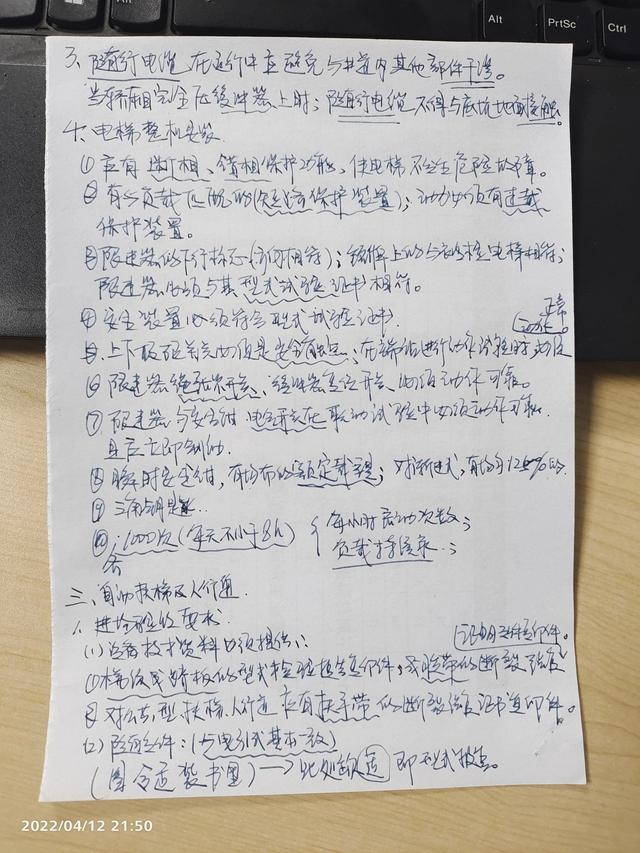 Alt
PrtSc
Ctrl
3、随行电缆 在运行中应避免与井道内其他部件干涉。
当轿厢完全压缓冲器上时；随行电缆不得与底坑地面接触。
十、电梯整机安装
① 应有断相、错相保护功能，使电梯不发生危险故障。
② 有与负载匹配的(短路保护装置)；动力必须有过载
保护装置。
③ 限速器的下行标志(方向相符)；铭牌上的与电梯相符；
限速器必须与其型式试验证书相符。
④ 安全装置必须符合型式试验证书。
正常
5、上下极限开关必须是安全触点，在端站进行动作试验时，必须
⑥ 限速器绳张紧开关、缓冲器复位开关、必须动作可靠。
⑦ 限速器与安全钳 电气开关在联动试验中必须动作可靠
且应立即制动。
⑧ 瞬时安全钳，有均布的额定载重；对渐进式，有均布125%的
⑨ 三角钥匙
⑩ 1000次(每天不小于8h) { 每小时启动次数；
负载持续率；
三、自动扶梯及人行道
1、进场验收要求
(1) 必须提供：
复印件。
① 梯级或踏板的型式检验报告复印件，或胶带的断裂强度
② 对公共型扶梯、人行道 应有扶手带的断裂强度证书复印件。
(2) 随机文件：(与电引式基本一致)
(图合运装书置) → 此处的 即
2022/04/12 21:50